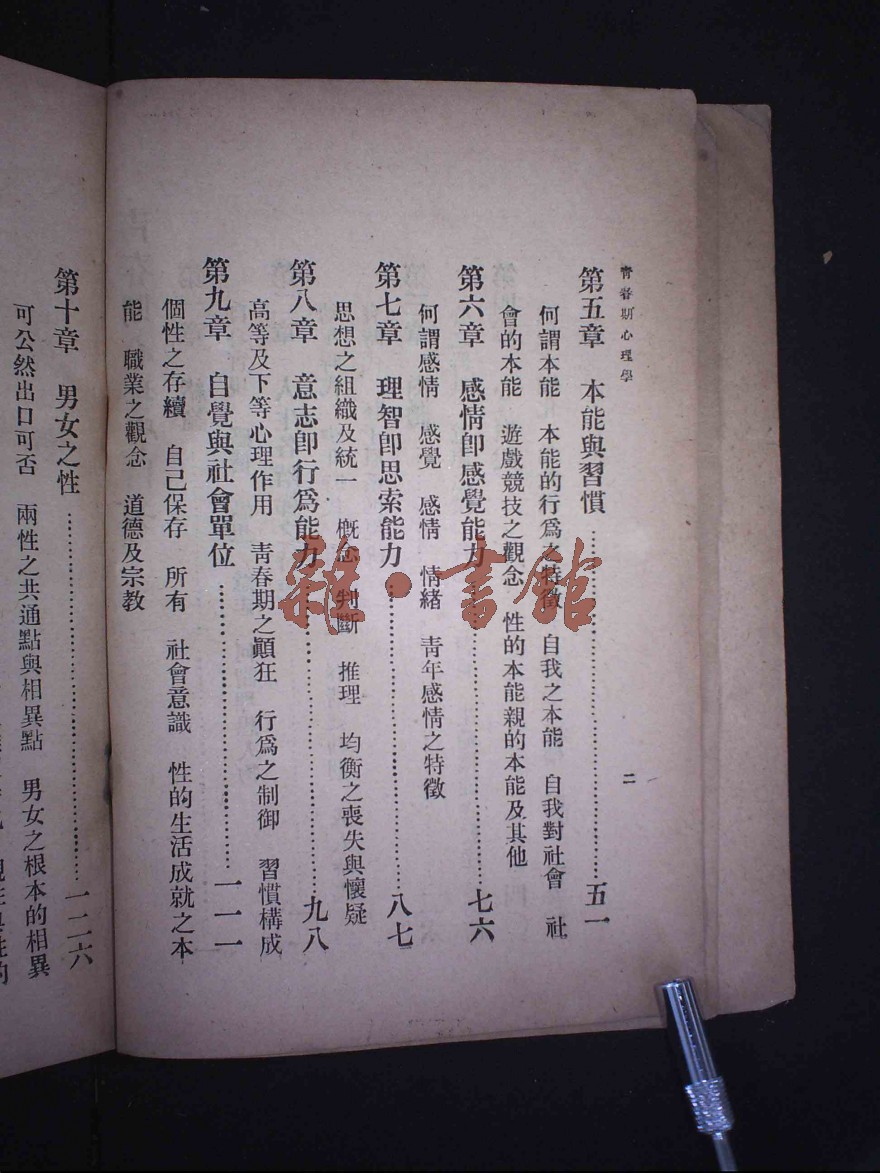 青春期心理學
二
第五章 本能與習慣……五一
何謂本能 本能的行爲之特徵 自我之本能 自我對社會 社
會的本能 遊戲競技之觀念 性的本能親的本能及其他
第六章 感情卽感覺能力……七六
何謂感情 感覺 感情 情緒 靑年感情之特徵
第七章 理智卽思索能力……八七
思想之組織及統一 槪念 判斷 推理 均衡之喪失與懷疑
第八章 意志卽行爲能力……九八
高等及下等心理作用 靑春期之顚狂 行爲之制御 習慣構成
第九章 自覺與社會單位……一一一
個性之存續 自己保存 所有 社會意識 性的生活成就之本
能 職業之觀念 道德及宗教
第十章 男女之性……一二六
可公然出口可否 兩性之共通點與相異點 男女之根本的相異
雜·書館